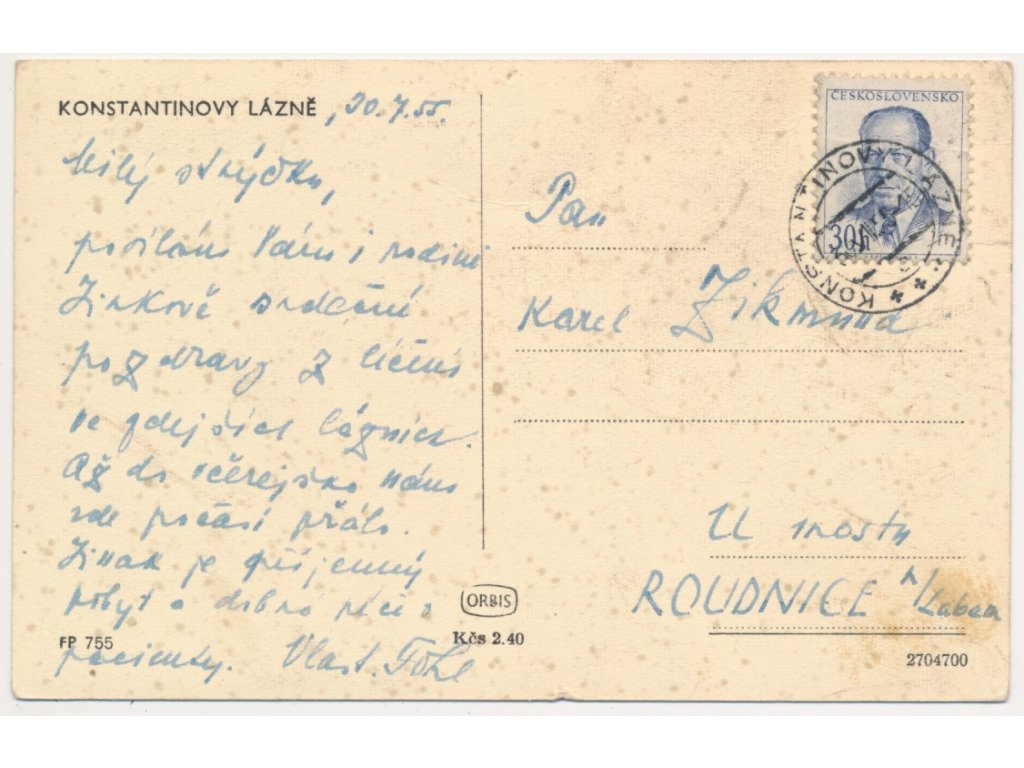 KONSTANTINOVY LÁZNĚ, 20.7.55.
Milý strýčku,
posílám Vám i rodině
Jirkově srdečné
pozdravy z léčení
ve zdejších lázních.
Až do včerejška nám
zde počasí přálo.
Jinak je příjemný
pobyt a dobrá péče o
pacienty. Vlast.
FP 755
ORBIS
Kčs 2.40
ČESKOSLOVENSKO
30h
KONSTANTINOVY LÁZNĚ
Pan
Karel Zikmund
U mostu
ROUDNICE n/Labem
2704700